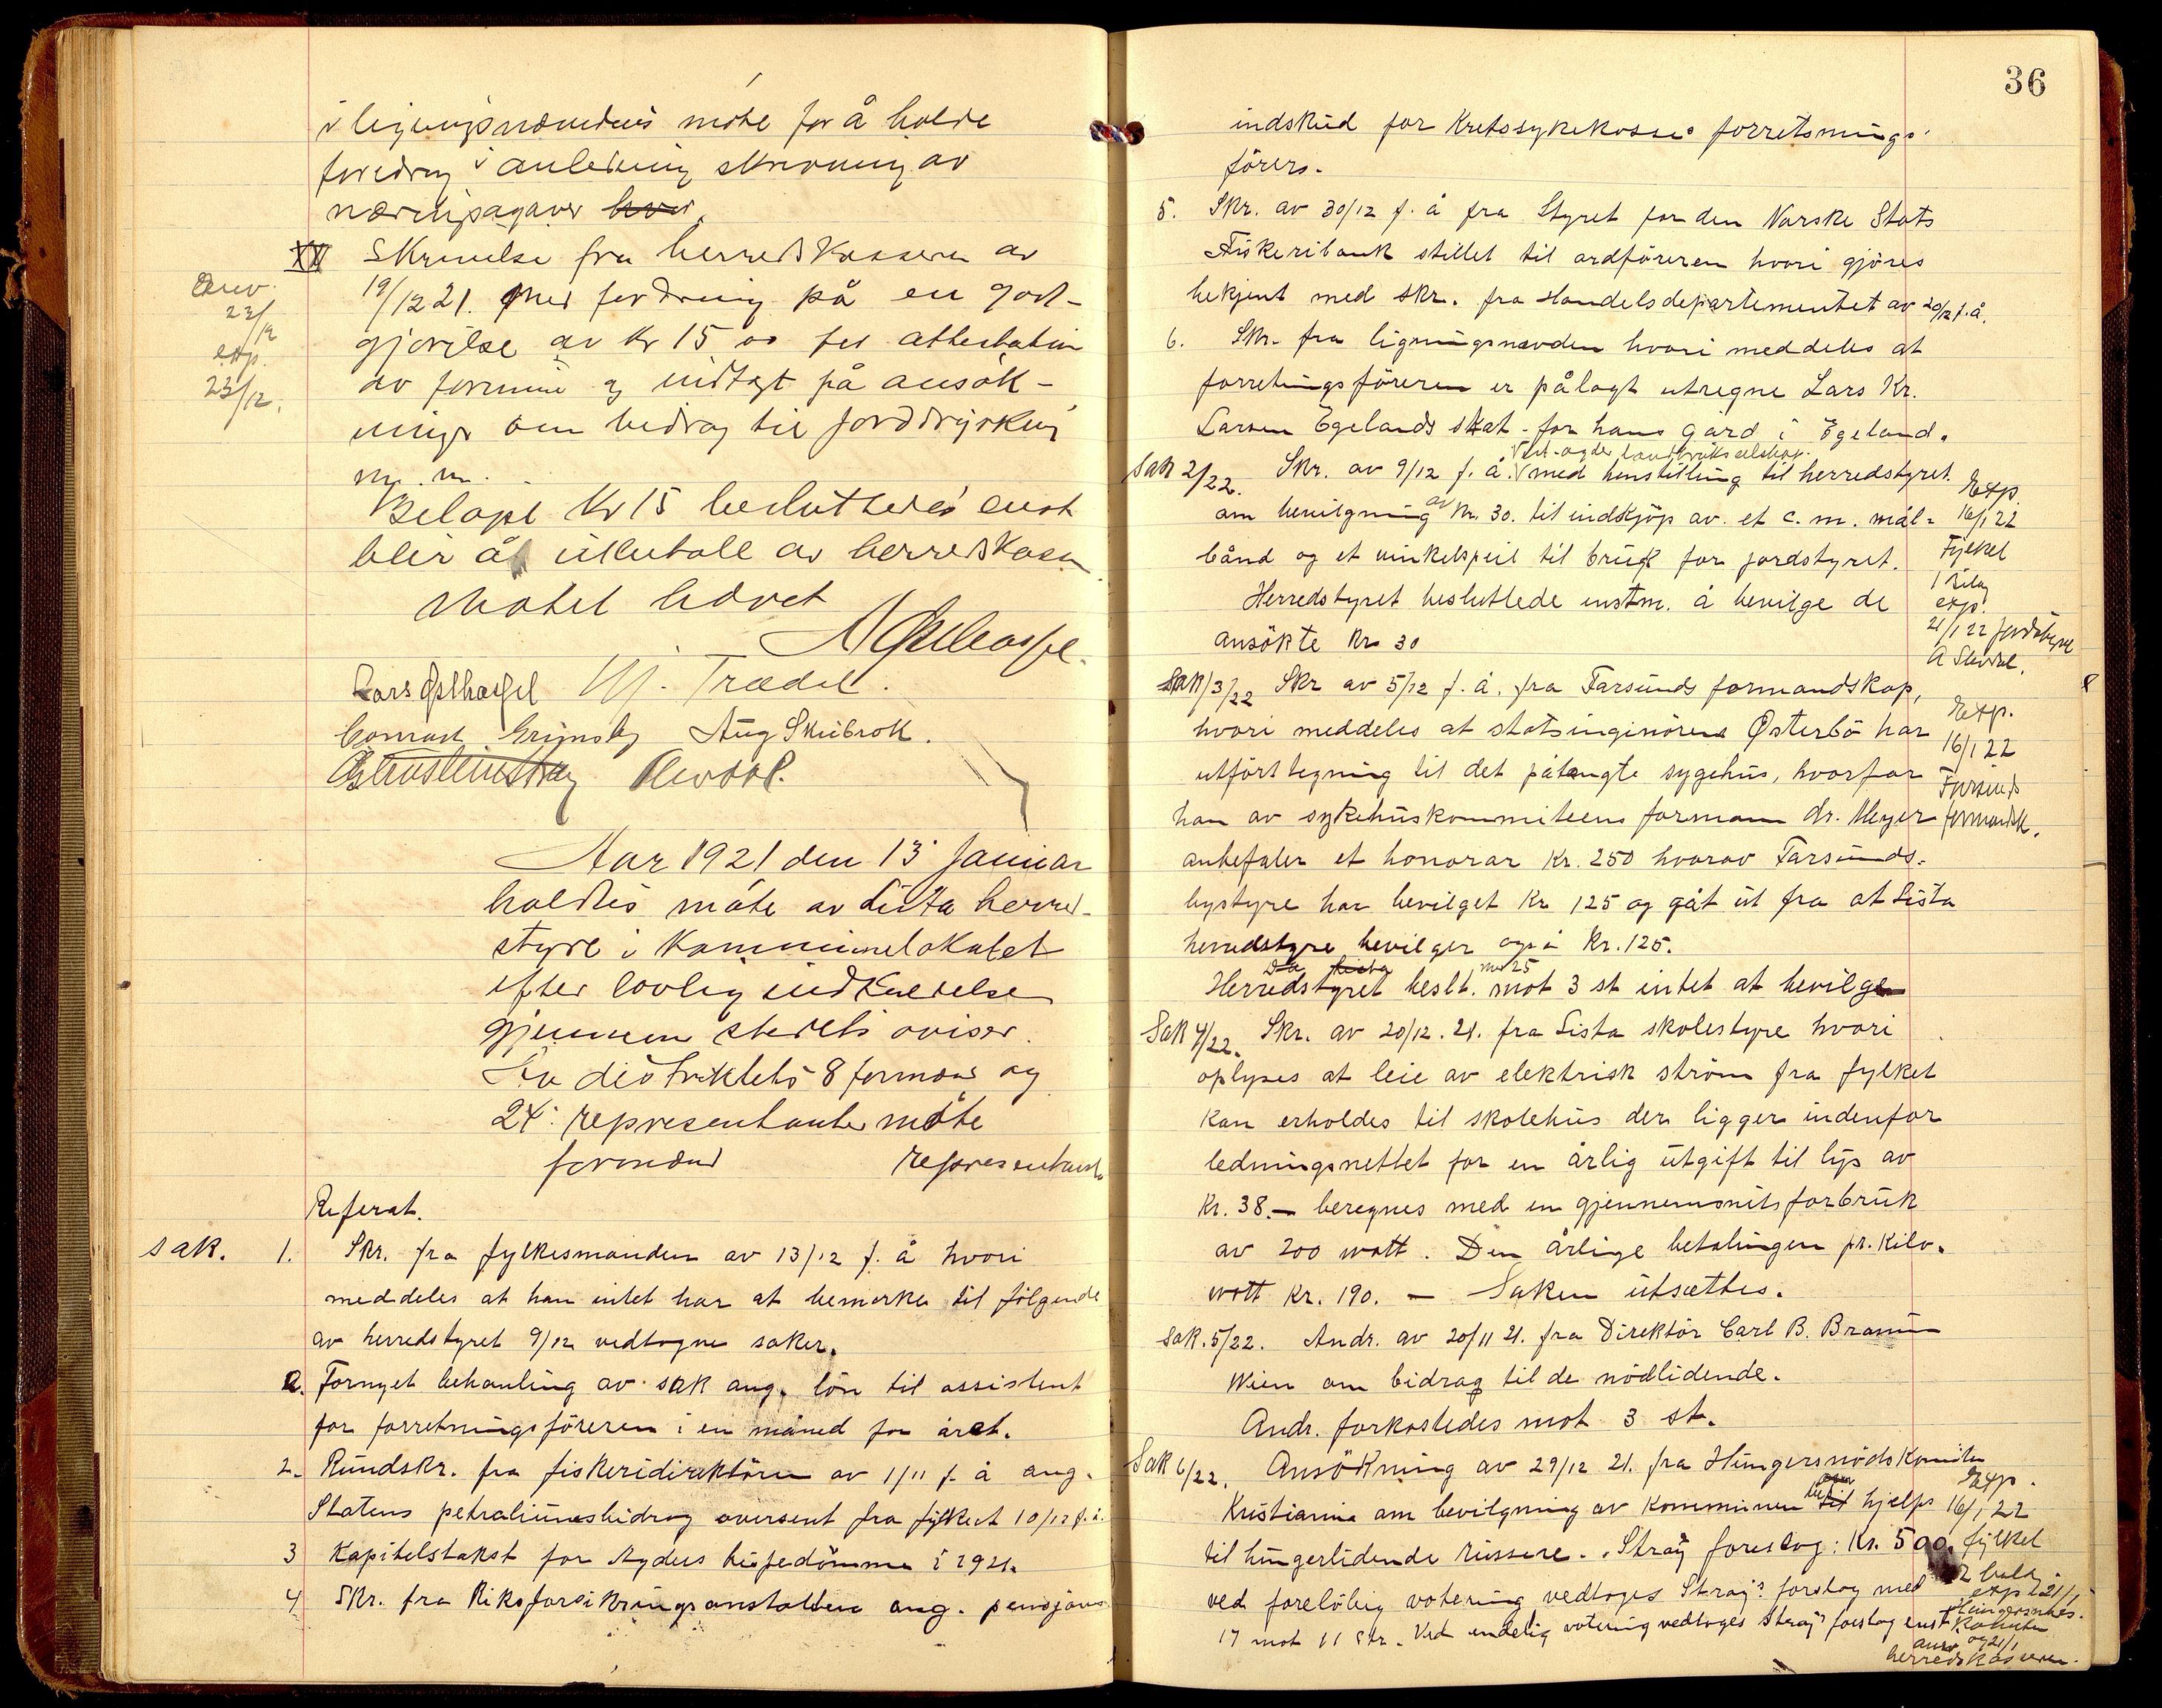 i ligningsnævndens møte for å holde
foredrag i anledning skrivning av
næringsopgaver
XV Skrivelse fra herredskassereren av
19/12 21. med fordring på en god-
gjørelse av kr 15 00 for attestation
av formue og indtægt på ansøk-
ninger om bidrag til jorddyrkning
m. m.
Anv.
23/12
exp.
23/12.
Beløpet kr 15 besluttedes enst
blir at utbetale av herredskassen
Møtet hævet
Lars Østhassel
Conrad Grimsby Aug Skeibrok.
Aar 1921 den 13 Januar
holdtes møte av Lista herred-
styre i kommunelokalet
efter lovlig indkaldelse
gjennem stedets aviser.
Av distriktets 8 formænd og
24 representanter møtte
formænd representanter
Referat.
sak. 1. Skr. fra fylkesmanden av 13/12 f. å hvori
meddeles at han intet har at bemerke til følgende
av herredstyret 9/12 vedtagne saker.
2. Fornyet behanling av sak ang. løn til assistent
for forretningsføreren i en måned for året.
2. Rundskr. fra fiskeridirektøren av 1/11 f. å ang.
Statens petroliumsbidrag oversent fra fylket 10/12 f. å.
3 Kapitelstakst for Agders bispedømme i 1921.
4 Skr. fra Riksforsikringsanstalten ang. pensjons
36
indskud for Kretssykekasses forretsnings-
førers.
5. Skr. av 30/12 f. å fra Styret for den Norske Stats
Fiskeribank stillet til ordføreren hvori gjøres
bekjent med skr. fra Handelsdepartementet av 20/12 f. å.
6. Skr. fra ligningsnevden hvori meddeles at
forretingsføreren er pålagt utregne Lars Kr.
Larsen Egelands skat for hans gård i Egeland.
Vest-agder landbrukselskap.
Sak 2/22. Skr. av 9/12 f. å. med henstilling til herredstyret
om bevilgning av kr. 30. til indkjøp av et c. m. mål-
bånd og et vinkelspeil til bruk for jordstyret.
Herredstyret besluttede enstm. å bevilge de
ansøkte kr 30
Exp.
16/1 22
Fylket
1 bilag
exp.
21/1 22 jordstyret
Sak 3/22 Skr av 5/12 f. å. fra Farsunds formandskap,
hvori meddeles at statsinginøren Østerbö har
utført tegning til det påtængte sygehus, hvorfor
han av sykehuskommiteens formann dr. Meyer
anbefaler et honorar kr. 250 hvorav Farsunds-
bystyre har bevilget kr 125 og gåt ut fra at Lista
herredstyre bevilger også kr. 125.
Exp.
16/1 22
Farsunds
formandsk.
Herredstyret beslt. med 25 mot 3 st intet at bevilge
Sak 4/22. Skr. av 20/12. 21. fra Lista skolestyre hvori
oplyses at leie av elektrisk strøm fra fylket
kan erholdes til skolehus der ligger indenfor
ledningsnettet for en årlig utgift til lys av
kr. 38.— beregnes med en gjennemsnitsforbruk
av 200 watt. Den årlige betalingen pr. kilo-
watt kr. 190. — Saken utsættes.
Sak. 5/22. Andr. av 20/11 21. fra Direktør Carl B.
Wien om bidrag til de nödlidende.
Andr. forkastedes mot 3 st.
Sak 6/22. Ansökning av 29/12 21. fra Hungersnödskomiteen
Kristiania om bevilgning av kommunen til hjelp
til hungerlidende russere. Stray foreslog: kr. 500.
ved foreløbig votering vedtoges Stray's forslag med
17 mot 11 str. Ved endelig votering vedtoges Stray's forslag enst.
Exp.
16/1 22
fylket
2 bilag
exp 21/1
Hungersnøds.
Komiteen
anv. og 21/1
herredskasseren.